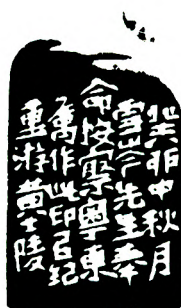 癸卯中秋月
雪岑先生奉
命按察粵東
作此印㠯紀
重游黄士陵